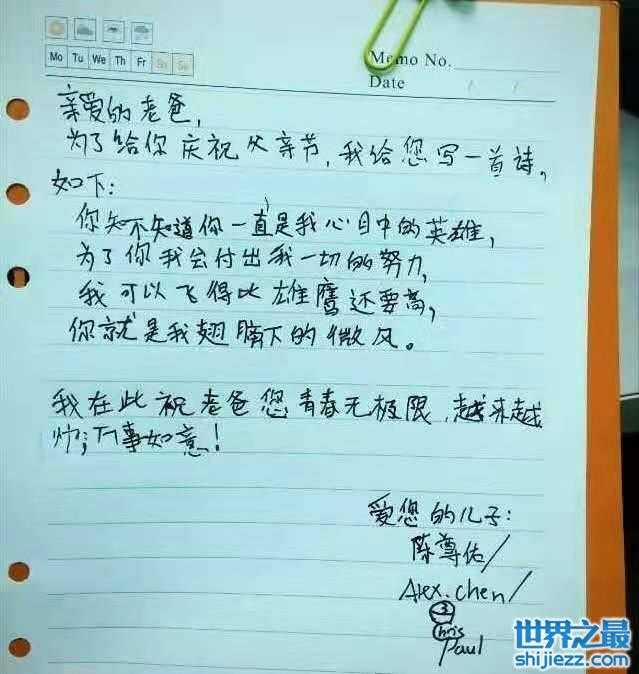 Memo No.
Mo Tu We Th Fr Sa Su
Date / /
亲爱的老爸，
为了给你庆祝父亲节，我给您写一首诗，
如下：
你知不知道你一直是我心目中的英雄，
为了你我会付出我一切的努力，
我可以飞得比雄鹰还要高，
你就是我翅膀下的微风。
我在此祝老爸您青春无极限，越来越
事如意！
爱您的儿子：
陈尊佑/
Alex.chen/
3
Chris
Paul
世界之最
shijiezz.com